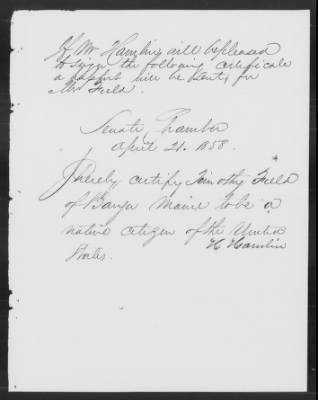 If Mr Hamlin will be pleased
to sign the following certificate
a passport will be sent for
Mr Field.
Senate Chamber
April 21. 1858.
I hereby certify Timothy Field
of Bangor Maine to be a
native citizen of the United
H Hamlin
States.